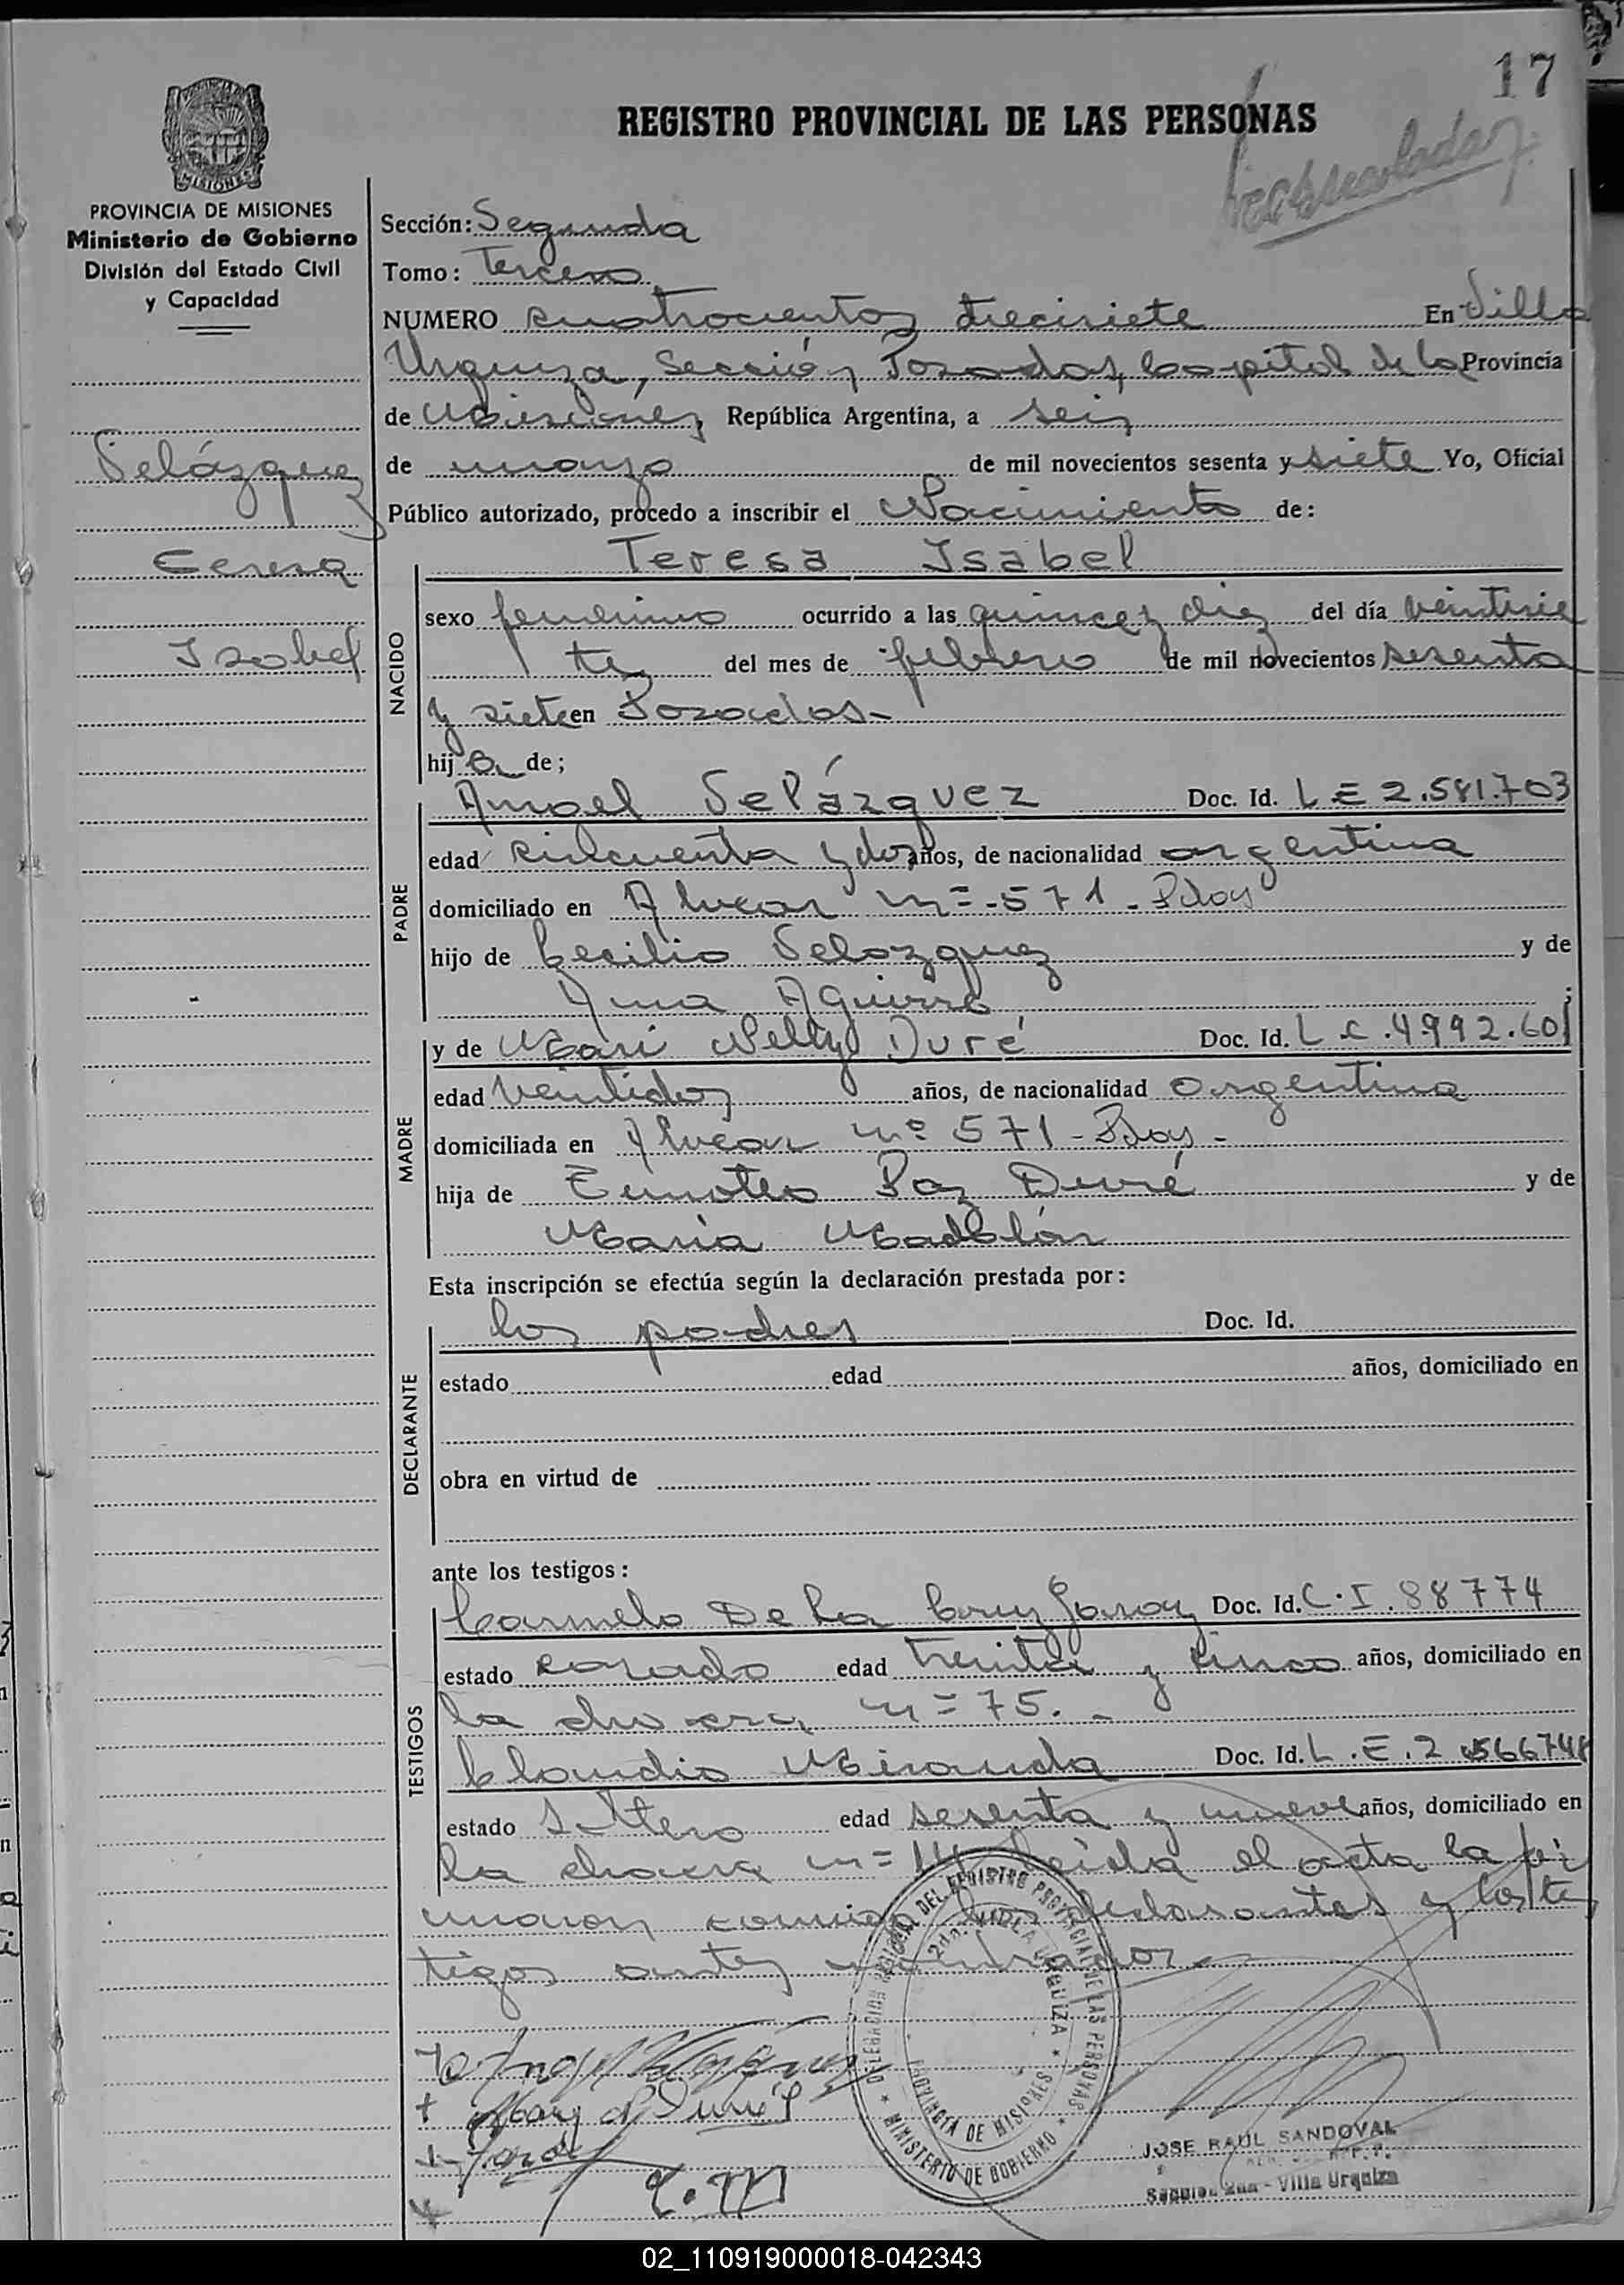 17
REGISTRO PROVINCIAL DE LAS PERSONAS
MISIONES
PROVINCIA DE MISIONES
Ministerio de Gobierno
División del Estado Civil
y Capacidad
Velázquez
Teresa
Isabel
Sección: Segunda
Tomo: Tercero
NUMERO cuatrocientos diecisiete En Villa
Urquiza, Sección Posadas, Capital de la Provincia
de Misiones República Argentina, a seis
de marzo de mil novecientos sesenta y siete Yo, Oficial
Público autorizado, procedo a inscribir el Nacimiento de:
Teresa Isabel
NACIDO
sexo femenino ocurrido a las quince y diez del día veintisie
te del mes de febrero de mil novecientos sesenta
y siete en Posadas-
hija de;
PADRE
Angel Velázquez Doc. Id. L E 2.581.703
edad cincuenta y dos años, de nacionalidad argentina
domiciliado en Alvear n=-571-Pdas
hijo de Cecilio Velazquez y de
Ana Aguirre ;
MADRE
y de Mari Nelly Duré Doc. Id. L.C.4992.601
edad veintidos años, de nacionalidad argentina
domiciliada en Alvear nº 571-Pdas-
hija de Timoteo Paz Duré y de
María
Esta inscripción se efectúa según la declaración prestada por:
DECLARANTE
los padres Doc. Id.
estado edad años, domiciliado en
obra en virtud de
ante los testigos:
TESTIGOS
Carmelo De La Cruz Garay Doc. Id. C.I.88774
estado casado edad treinta y cinco años, domiciliado en
la chacra n=75.-
Claudio Miranda Doc. Id. L.E.2.566748
estado Soltero edad sesenta y nueve años, domiciliado en
la chacra n= leida el acta la fir
maron conmigo los declarantes y los tes
tigos antes nombrados.-
DELEGACION DEL REGISTRO PROVINCIAL DE LAS PERSONAS
2da. VILLA URQUIZA
PROVINCIA DE MISIONES
MINISTERIO DE GOBIERNO
Angel Velázquez
Mary N Duré
Garay
C.M
JOSE RAUL SANDOVAL
Sección 2da - Villa Urquiza
02_110919000018-042343